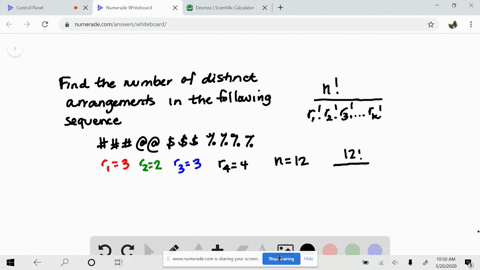 Control Panel
Numerade Whiteboard
Desmos | Scientific Calculator
numerade.com/answers/whiteboard/
Find the number of distinct
arrangements in the following
sequence
n!
r₁! r₂! r₃! ... rₖ!
### @@ $$$ %%%%
r₁=3 r₂=2 r₃=3 r₄=4 n=12 12!
www.numerade.com is sharing your screen. Stop sharing Hide
10:50 AM
3/20/2020